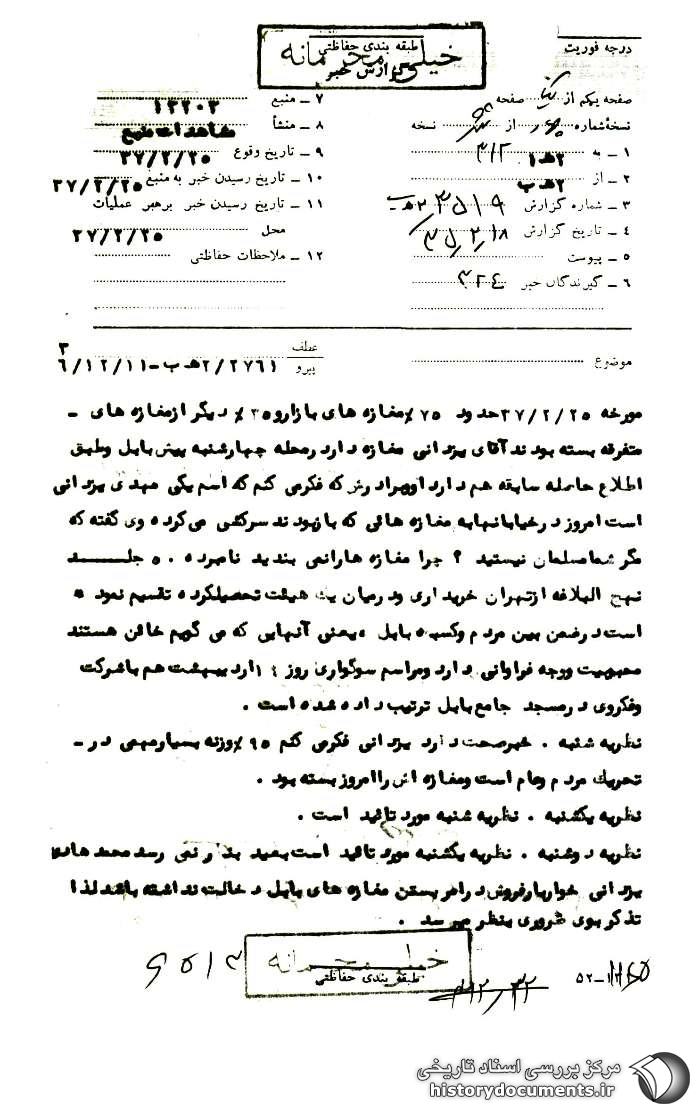 خیلی محرمانه
طبقه بندی حفاظتی
گزارش خبر
درجه فوریت
صفحه یکم از یک صفحه
نسخهٔ شماره از نسخه
۱ ـ به ۳۱۲
۲ ـ از ۲ هـ ب
۳ ـ شماره گزارش
۴ ـ تاریخ گزارش ۳۵/۲/۱۸
۵ ـ پیوست
۶ ـ گیرندگان خبر
۷ ـ منبع ۱۳۲۰۳
۸ ـ منشأ مشاهدات منبع
۹ ـ تاریخ وقوع ۳۷/۲/۲۵
۱۰ ـ تاریخ رسیدن خبر به منبع ۳۷/۲/۲۵
۱۱ ـ تاریخ رسیدن خبر برهبر عملیات
محل ۳۷/۲/۲۵
۱۲ ـ ملاحظات حفاظتی
موضوع
عطف ۳
پیرو ۲/۲۷۶۱ هـ ب ـ ۶/۱۲/۱۱
مورخه ۳۷/۲/۲۵ حدود ۷۵٪ مغازه های بازار و ۳۵٪ دیگر از مغازه های ـ
متفرقه بسته بودند آقای یزدانی مغازه دارد رمحله چهارشنبه پیش بابل وطبق
اطلاع حاصله سابقه هم دارد او وبرادرش که فکر می کنم که اسم یکی مهدی یزدانی
است امروز در خیابانها به مغازه هائی که باز بودند سرکشی می کرده وی گفته که
مگر شما مسلمان نیستید ؟ چرا مغازه ها را نمی بندید نامبرده ۵۰ جلـــد
نهج البلاغه از تهران خریداری ودرمیان یک هیئت تحصیلکرده تقسیم نمود ه
است درضمن بین مردم وکسبه بابل ، یعنی آنهایی که می گویم خائن هستند
محبوبیت ووجه فراوانی دارد ومراسم سوگواری روز اردیبهشت هم با شرکت
وفکروی درمسجد جامع بابل ترتیب داده شده است .
نظریه شنبه . خبر صحت دارد یزدانی فکر می کنم ۹۵٪ وزنه بسیار مهمی در ـ
تحریک مردم وعام است ومغازه اش را امروز بسته بود .
نظریه یکشنبه . نظریه شنبه مورد تائید است .
نظریه دوشنبه . نظریه یکشنبه مورد تائید است بعید بنظر نمی رسد محمد هادی
یزدانی خواربارفروش در امر بستن مغازه های بابل دخالت نداشته باشد لذا
تذکر بوی ضروری بنظر میرسد .
خیلی محرمانه
طبقه بندی حفاظتی
۳۱۲/۳۲
مرکز بررسی اسناد تاریخی
historydocuments.ir